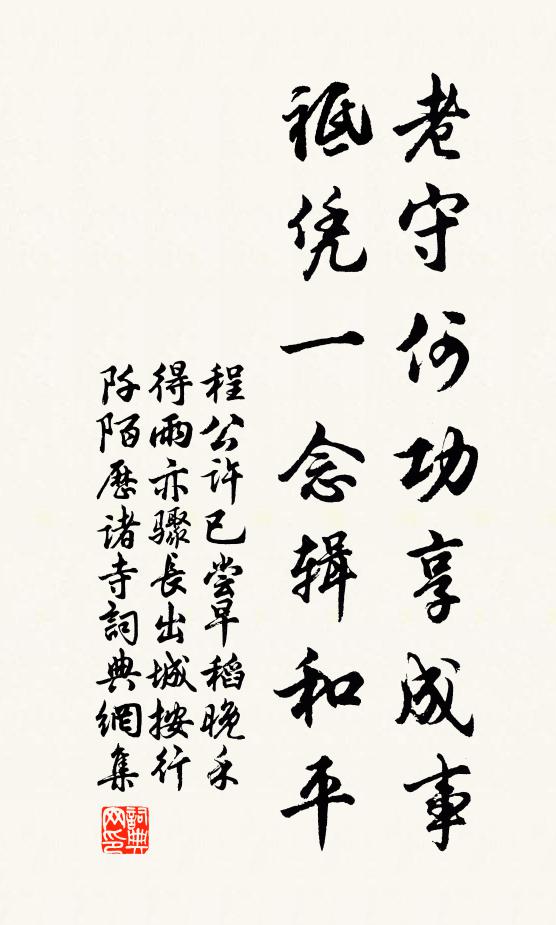 老守何功享成事
祗凭一念辑和平
程公许已尝早稻晚禾
得雨亦骤長出城按行
阡陌歷诸寺詞典網集
詞典
网印